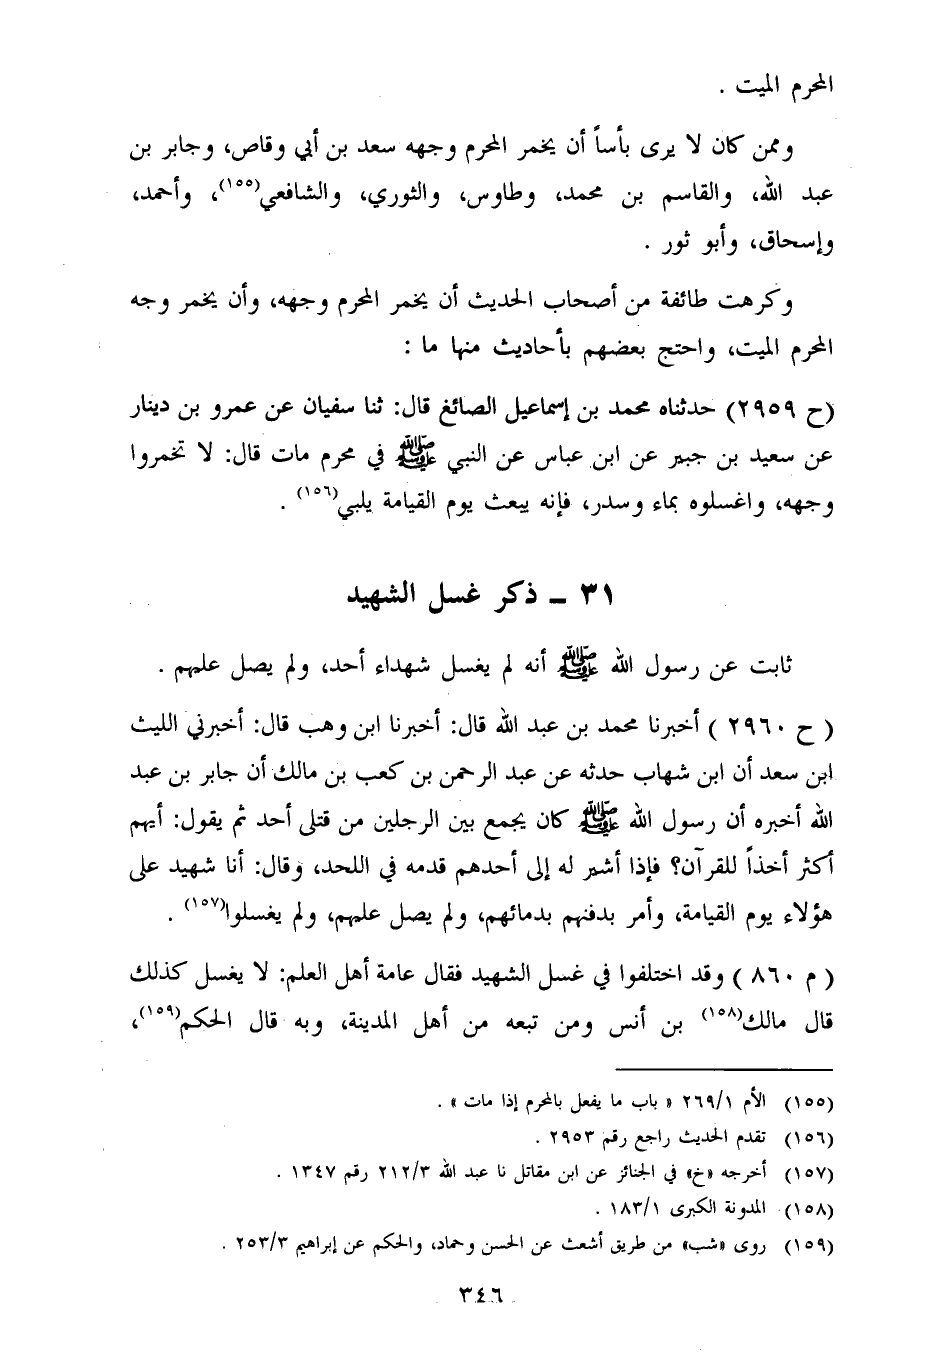 المحرم الميت .
وممن كان لا يرى بأساً أن يخمر المحرم وجهه سعد بن أبي وقاص، وجابر بن
عبد الله، والقاسم بن محمد، وطاوس، والثوري، والشافعي(١٥٥)، وأحمد،
وإسحاق، وأبو ثور .
وكرهت طائفة من أصحاب الحديث أن يخمر المحرم وجهه، وأن يخمر وجه
المحرم الميت، واحتج بعضهم بأحاديث منها ما :
(ح ٢٩٥٩) حدثناه محمد بن إسماعيل الصائغ قال: ثنا سفيان عن عمرو بن دينار
عن سعيد بن جبير عن ابن عباس عن النبي ﷺ في محرم مات قال: لا تخمروا
وجهه، واغسلوه بماء وسدر، فإنه يبعث يوم القيامة يلبي(١٥٦) .
٣١ ـ ذكر غسل الشهيد
ثابت عن رسول الله ﷺ أنه لم يغسل شهداء أحد، ولم يصل عليهم .
( ح ٢٩٦٠ ) أخبرنا محمد بن عبد الله قال: أخبرنا ابن وهب قال: أخبرني الليث
ابن سعد أن ابن شهاب حدثه عن عبد الرحمن بن كعب بن مالك أن جابر بن عبد
الله أخبره أن رسول الله ﷺ كان يجمع بين الرجلين من قتلى أحد ثم يقول: أيهم
أكثر أخذاً للقرآن؟ فإذا أشير له إلى أحدهم قدمه في اللحد، وقال: أنا شهيد على
هؤلاء يوم القيامة، وأمر بدفنهم بدمائهم، ولم يصل عليهم، ولم يغسلوا(١٥٧) .
( م ٨٦٠ ) وقد اختلفوا في غسل الشهيد فقال عامة أهل العلم: لا يغسل كذلك
قال مالك(١٥٨) بن أنس ومن تبعه من أهل المدينة، وبه قال الحكم(١٥٩)،
(١٥٥) الأم ٢٦٩/١ « باب ما يفعل بالمحرم إذا مات » .
(١٥٦) تقدم الحديث راجع رقم ٢٩٥٣ .
(١٥٧) أخرجه «خ» في الجنائز عن ابن مقاتل نا عبد الله ٢١٢/٣ رقم ١٣٤٧ .
(١٥٨) المدونة الكبرى ١٨٣/١ .
(١٥٩) روى «شب» من طريق أشعث عن الحسن وحماد، والحكم عن إبراهيم ٢٥٣/٣ .
٣٤٦